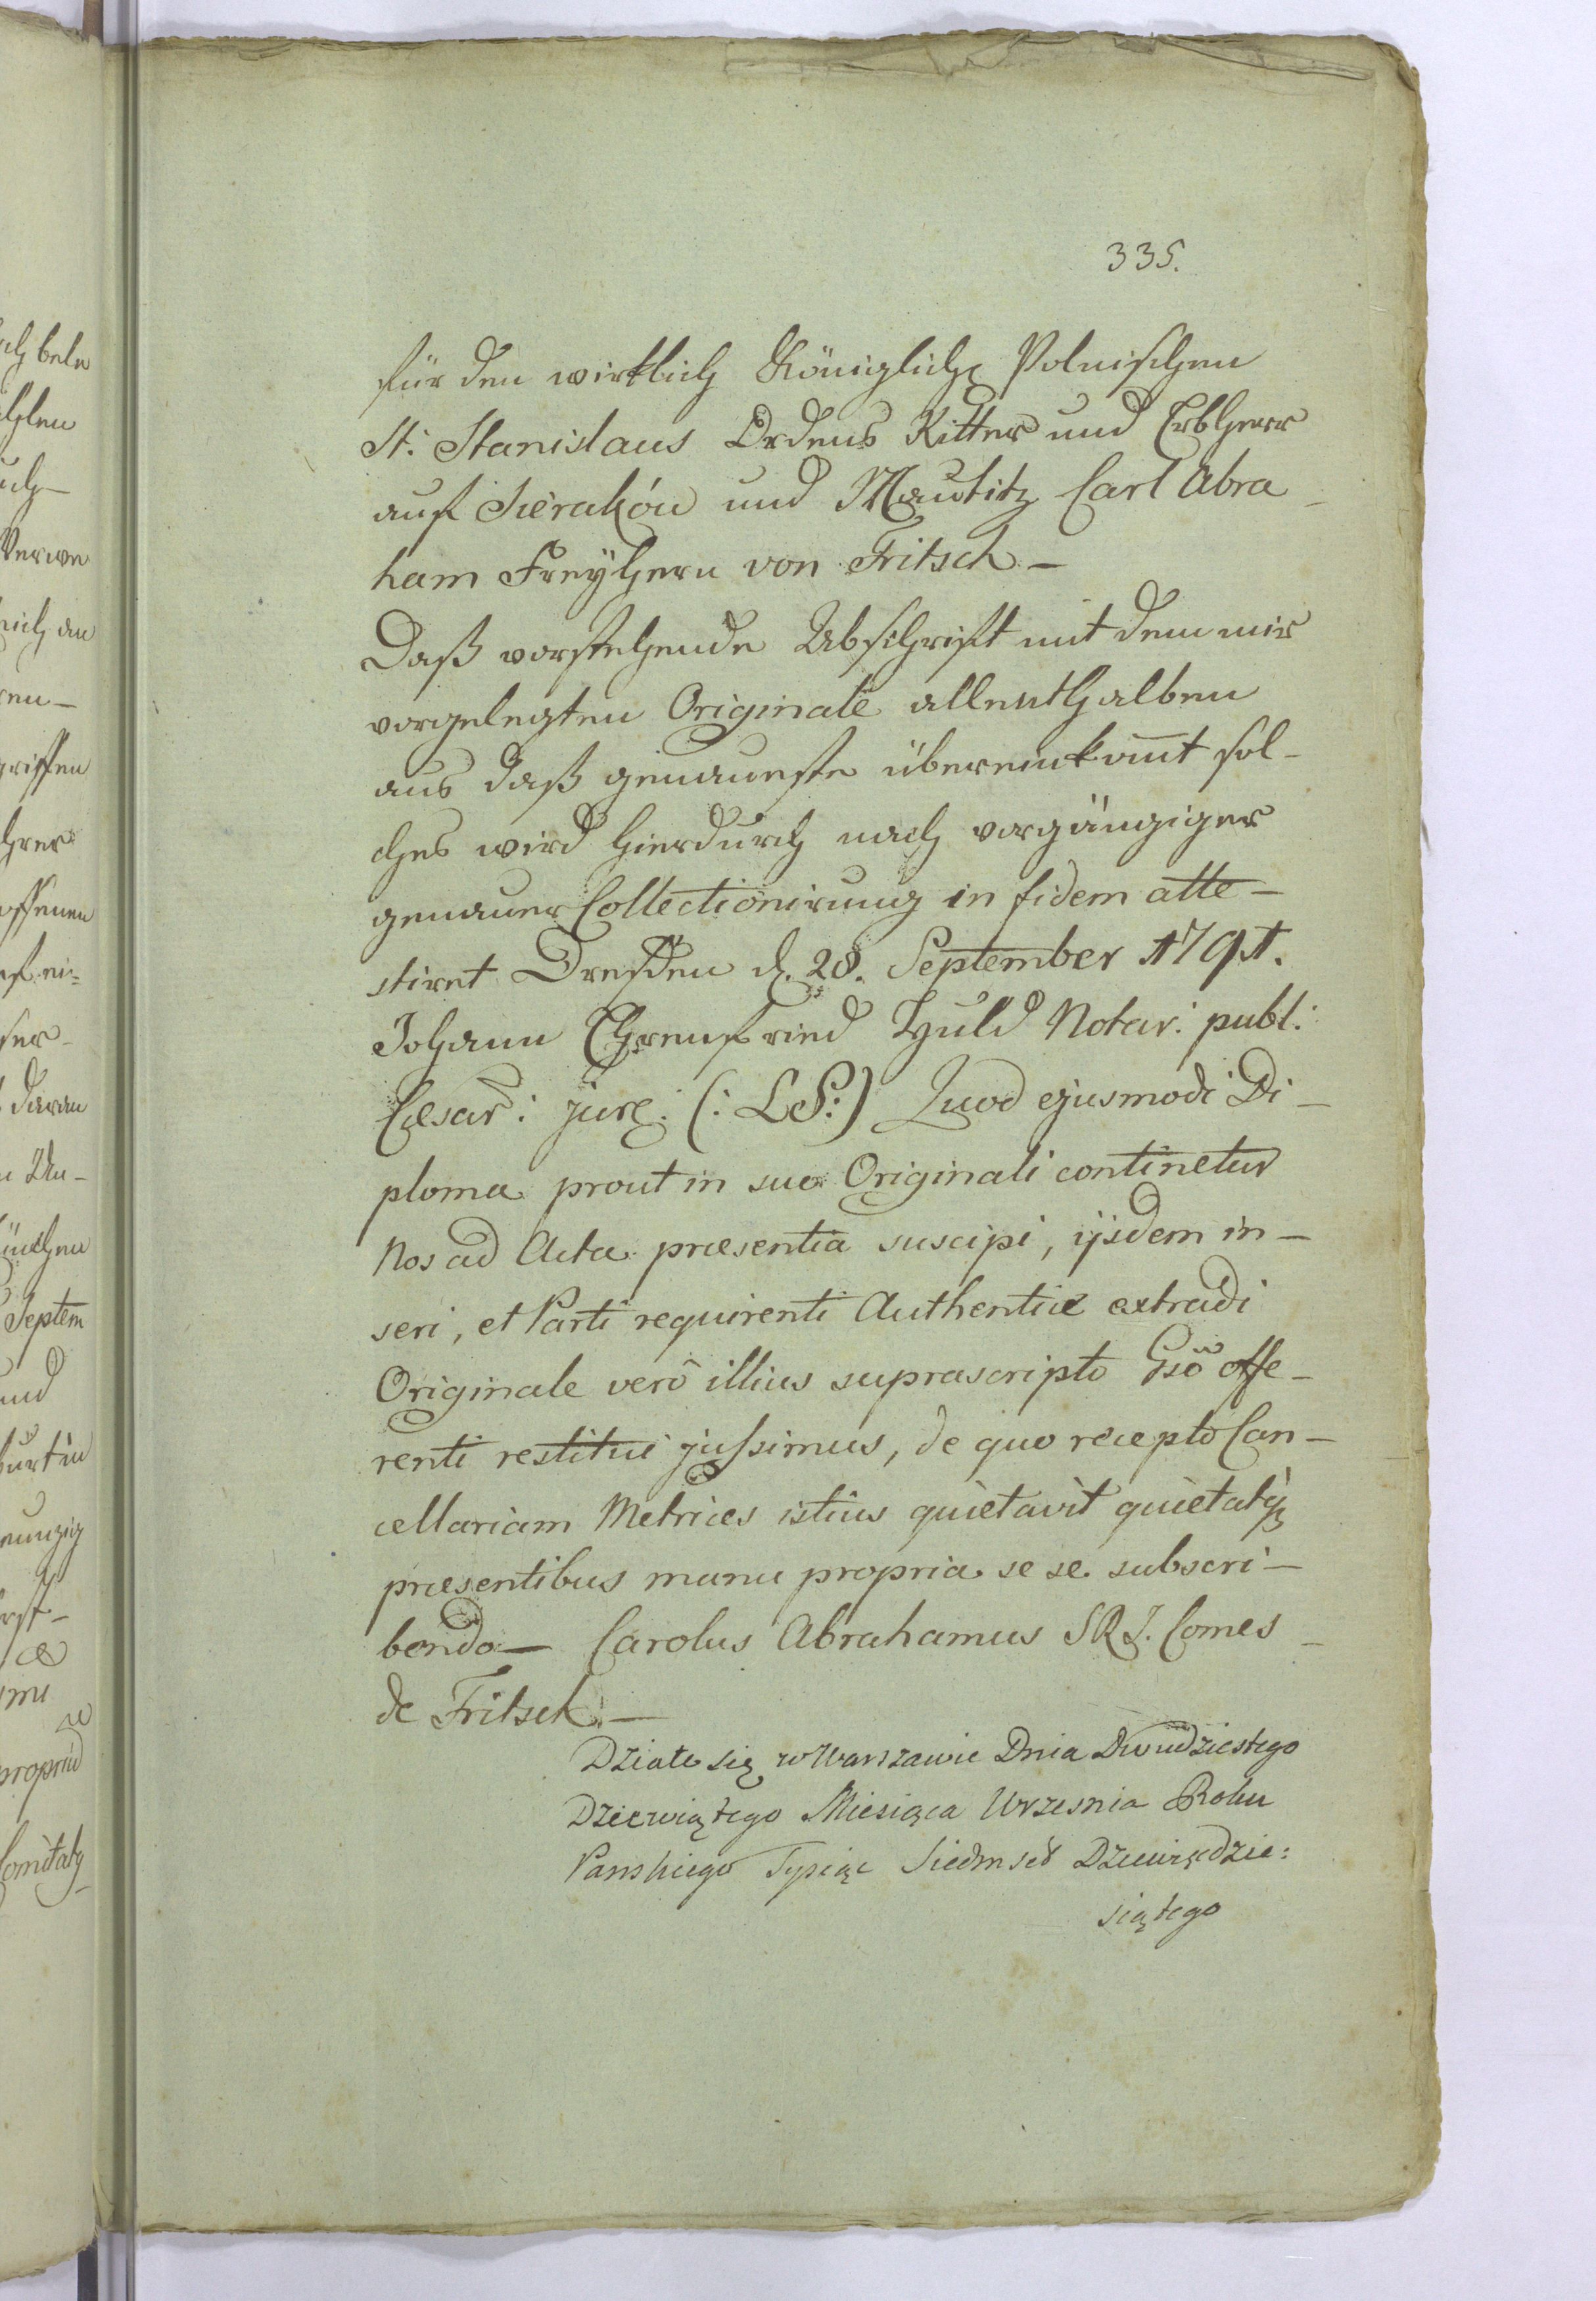 335.
für den wirklich Königliche Polnischen
St: Stanislaus Ordens Ritter und Erbherr
auf Sieraków und Mautitz Carl Abra
ham Freyhern von Fritsch –
Daß vorstehende Abschrift mit dem mir
vorgelegten Originale allenthalben
aus daß genaueste übereinkom̄t sol-
ches wird hierdurch nach vorgängiger
genauer Collectionirung in fidem atte-
stiret Dresden d. 28. September 1791.
Johann Ehrenfried Huld Notar: publ:
Cæsar: jure: (: LS:) Quod ejusmodi Di-
ploma prout in suo Originali continetur
Nos ad Acta præsentia suscipi, ijsdem in-
seri, et Parti requirenti Authentice extradi
Originale verô illius suprascripto Gsõ offe-
renti restitui jussimus, de quo recepto Can-
cellariam Metrices istius quietavit quietatq
præsentibus manu propria se se subscri-
bendo – Carolus Abrahamus SRJ. Comes
de Fritsch –
Działo się w Warszawie Dnia Dwudziestego
Dziewiątego Miesiąca Wrzesnia Roku
Panskiego Tysiąc Siedmset Dziewiędzie:
siątego
ch beln
hlen
uch
Verwe
nich an
en-
griffen
hrer
offenen
ser-
daran
Septem
und
burt in
neunzig
erst-
propriâ
Comitatq